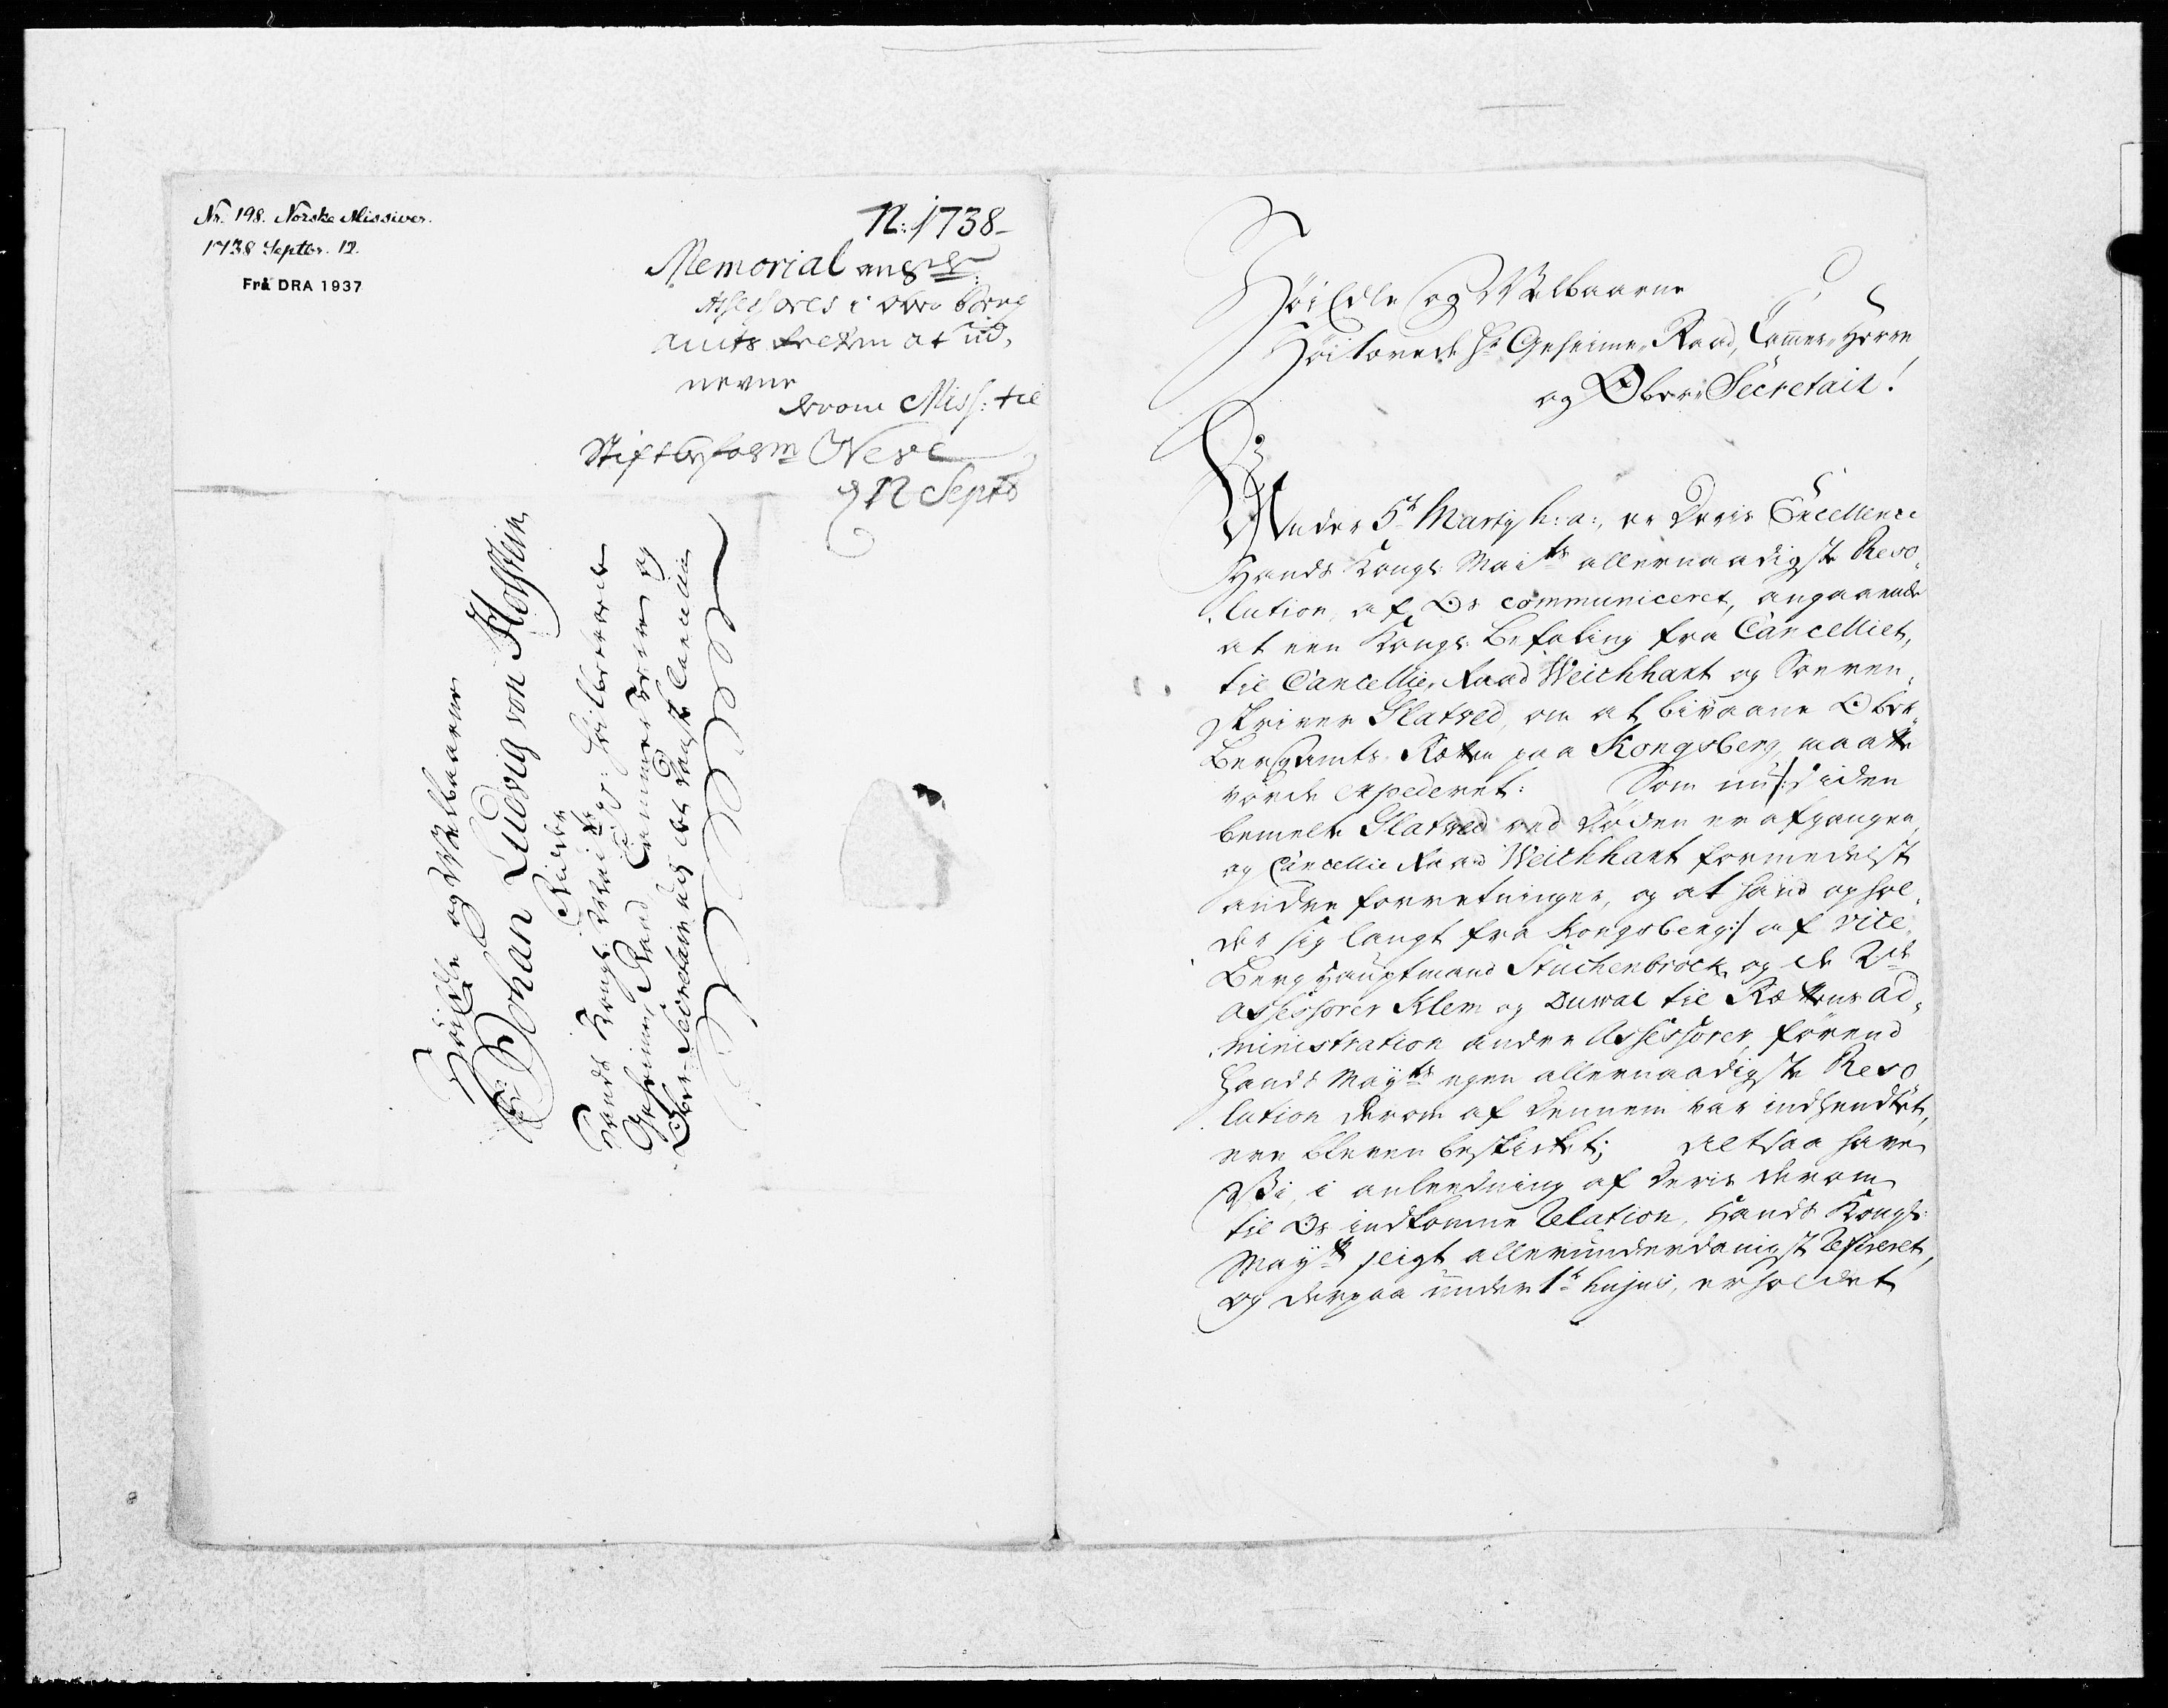 Nr. 198. Norske Missiver.
1738 Septbr. 12.
Frå DRA 1937
N: 1738-
Memorial ang:de
Assessores i Ober Berg
amts Retten at ud,
nevne
derom Miss: til
Stiftbefal:m Neve
d 12 Septb
HöiEdle og Welbaarne
Hr Johan Ludvig von Holstein
Ridder
Hands Kongl: Maits: Höilbetroede
Geheime Raad Cammer Herre og
Ober-Secretair ved det Danske Cancellie
HöiEdle og Velbaarne
Höitærede Hr Geheime Raad, Cammer-Herre
og Ober-Secretair!
Under 5t Martij h: a:, er Deris Excellence
Hands Kongl: Maits allernaadigste Reso-
lution, af Os communiceret, angaaende
at een Kongl: Befaling fra Cancelliet,
til Cancellie-Raad Weichhart og Soeren-
skriver Slatved, om at bivaane Ober-
BergAmts-Retten paa Kongsberg, maatte
vorde expederet: Som nu /: siden
bemelte Slatved ved Döden er afgangen
og Cancellie Raad Weichhart formedelst
andre forretninger, og at hand ophol-
der sig langt fra Kongsberg :/ af Vice-
Berg Hauptmand Stuckenbrock og de 2de
Assessorer Klem og Duwal til Rettens ad-
ministration andre Assessorer, förend
Hands Mayts egen allernaadigste Reso-
lution derom af dennem var indhendtet,
ere bleven beskicket; Altsaa have
Vi, i anledning af deris derom
til Os indkomne Relation, Hands Kongl:
Mayt sligt allerunderdanigst Refereret,
og derpaa under 1t hujus, erholdet